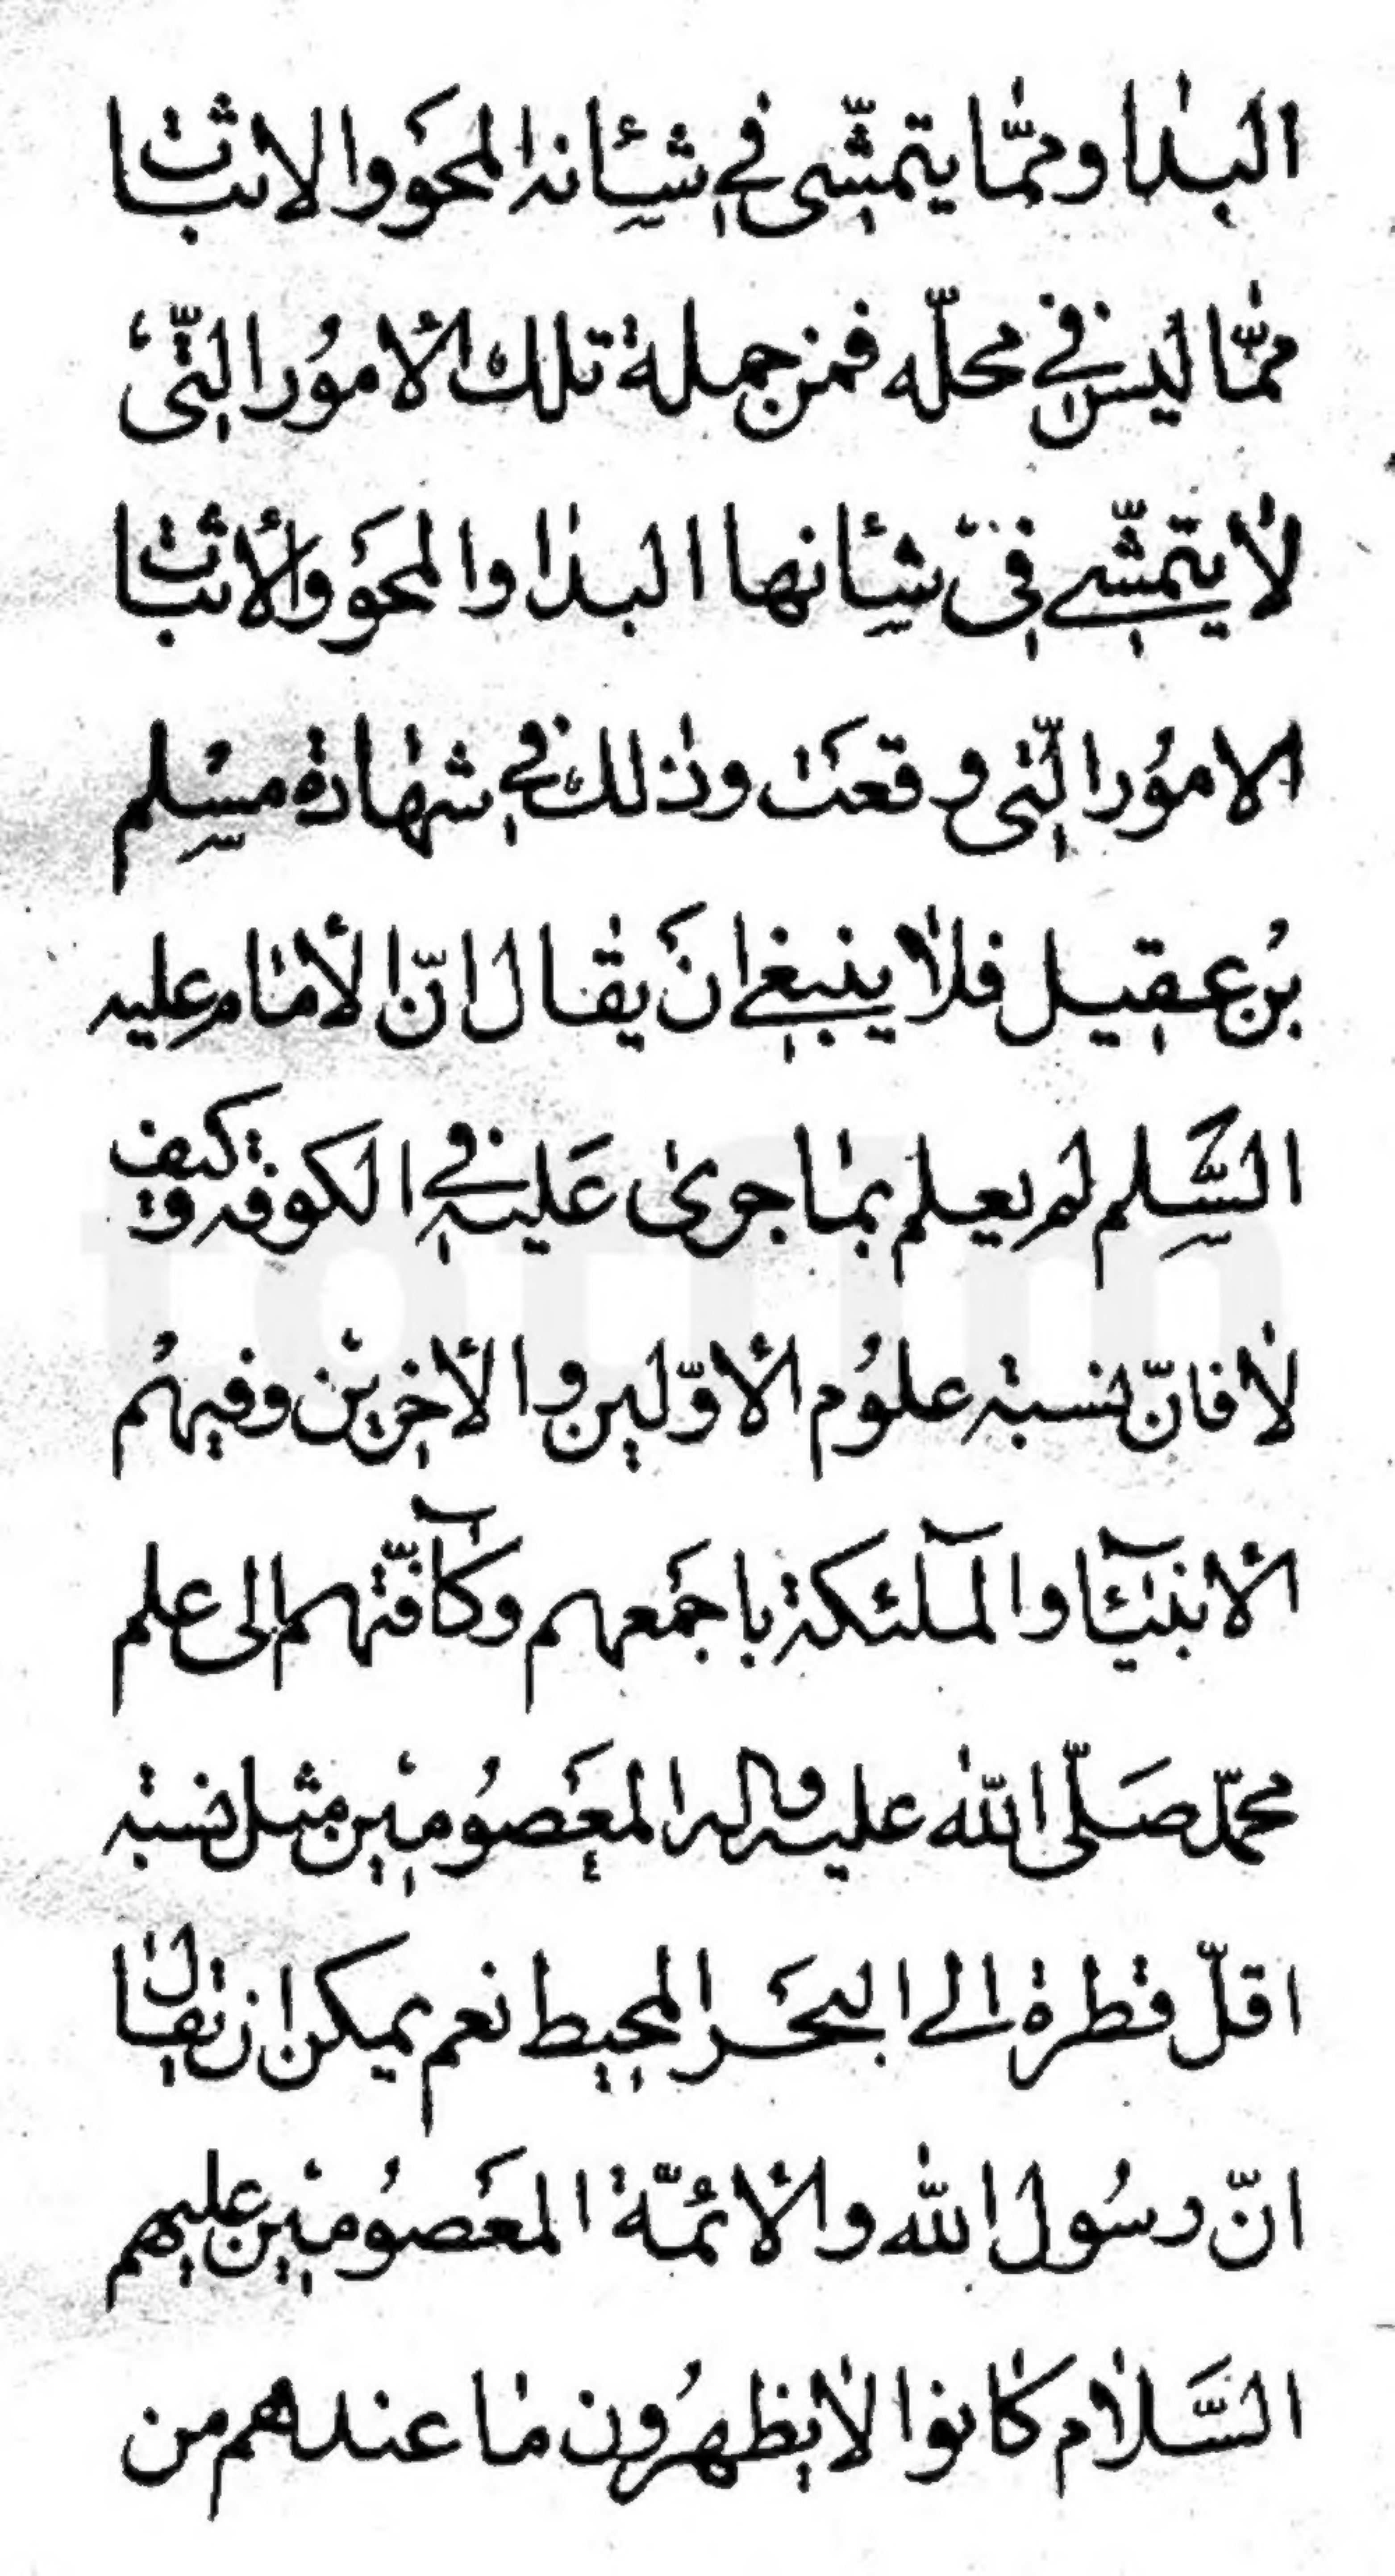 البدا وممّا يتمشّى في شأنه المحو والاثبات
ممّا ليس في محلّه فمن جملة تلك الأمور الّتى
لا يتمشّى في شأنها البدا والمحو والأثبات
الامور الّتى وقعت وذلك في شهادة مسلم
بن عقيل فلا ينبغي ان يقال انّ الأمام عليه
السّلم لم يعلم بما جرى عليه في الكوفه وكيف
لا فانّ نسبة علوم الأوّلين والأخرين وفيهم
الأنبيآء والملٓئكة باجمعهم وكآفّتهم الى علم
محمّد صَلّى اللّه عليه واله المعصومين مثل نسبة
اقلّ قطرة الى البحر المحيط نعم يمكن ان يقال
انّ رسول اللّه والأئمّة المعصومين عليهم
السَّلام كانوا لا يظهرون ما عندهم من